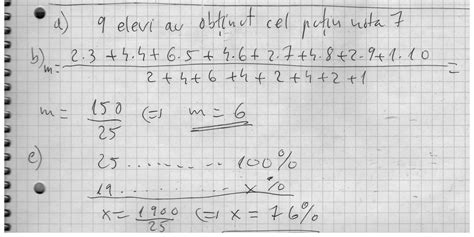 a) 9 elevi au obținut cel puțin nota 7
b) m = (2.3 + 4.4 + 6.5 + 4.6 + 2.7 + 4.8 + 2.9 + 1.10) / (2 + 4 + 6 + 4 + 2 + 4 + 2 + 1) =
m = 150/25 (=) m = 6
c) 25 ........... 100%
19 ........... x%
x = 1900/25 (=) x = 76%